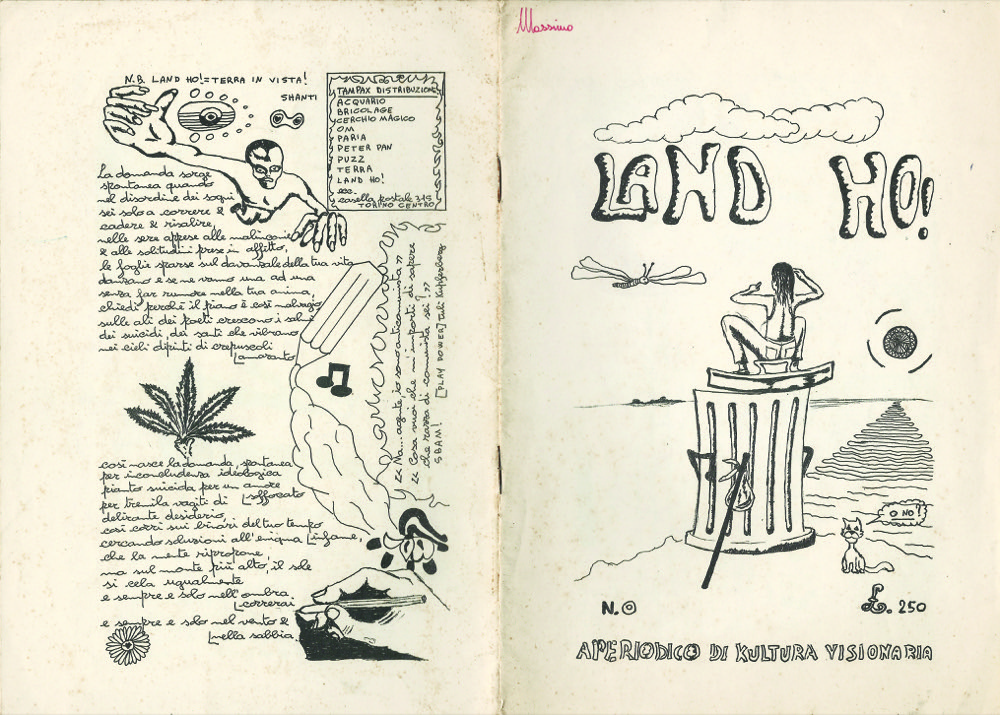 N.B. LAND HO!=TERRA IN VISTA!
SHANTI
TAMPAX DISTRIBUZIONE
ACQUARIO
BRICOLAGE
CERCHIO MAGICO
OM
PARIA
PETER PAN
PUZZ
TERRA
LAND HO!
ecc.
casella postale 315
TORINO CENTRO
La domanda sorge
spontanea quando
nel disordine dei sogni
sei solo a correre &
cadere & risalire,
nelle sere appese alle malinconie
& alle solitudini prese in affitto,
le foglie sparse sul davanzale della tua vita
danzano e se ne vanno una ad una
senza far rumore nella tua anima,
chiedi perché il piano è così malvagio
sulle ali dei poeti crescono i salici
dei suicidi, dei santi che vibrano
nei cieli dipinti di crepuscoli
amaranto
<< Ma... agente, io sono anticomunista >>
<< Cosa vuoi che m'importi di sapere
che razza di comunista sei! >>
SBAM! [PLAY POWER] Tuli Kupferberg
così nasce la domanda, spontanea
per inconcludenza ideologica
pianto suicida per un amore
soffocato
per tremila vagiti di
delirante desiderio,
così corri sui binari del tuo tempo
infame,
cercando soluzioni all'enigma
che la mente ripropone,
ma sul monte più alto, il sole
si cela ugualmente
e sempre e solo nell'ombra
correrai
e sempre e solo nel vento &
nella sabbia.
Massimo
LAND HO!
O NO?!
N.0
£. 250
APERIODICO DI KULTURA VISIONARIA